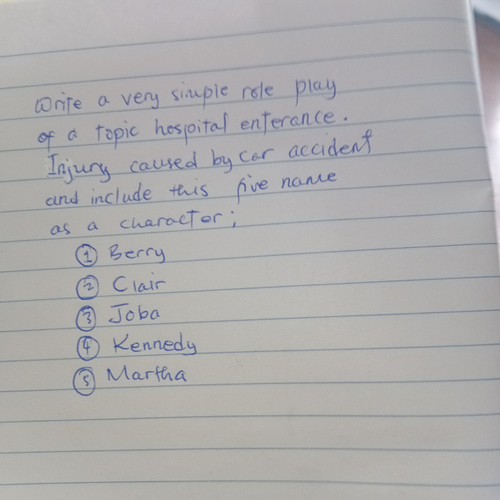 Write a very simple role play
of a topic hospital enterance.
Injury caused by car accident
and include this five name
as a character;
① Berry
② Clair
③ Joba
④ Kennedy
⑤ Martha